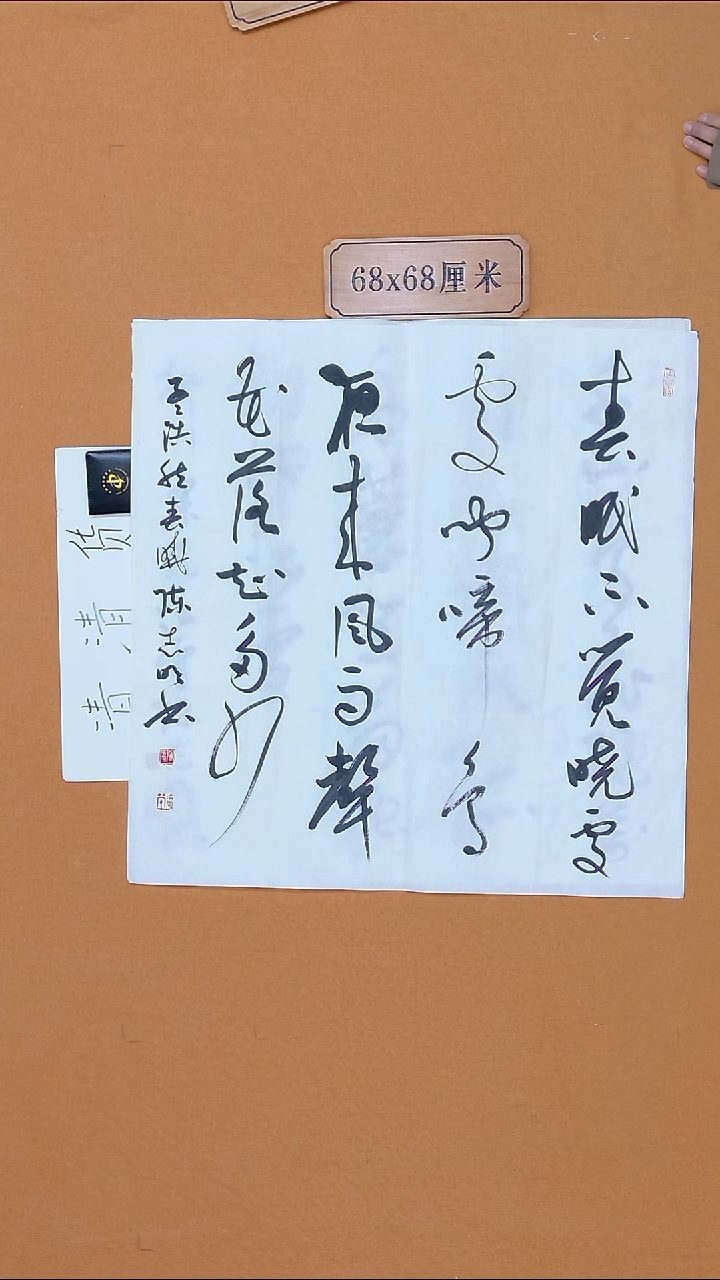 68x68厘米
春眠不觉晓處
處闻啼鸟
夜来風雨聲
花落知多少
孟浩然春晓陈志明书
清清